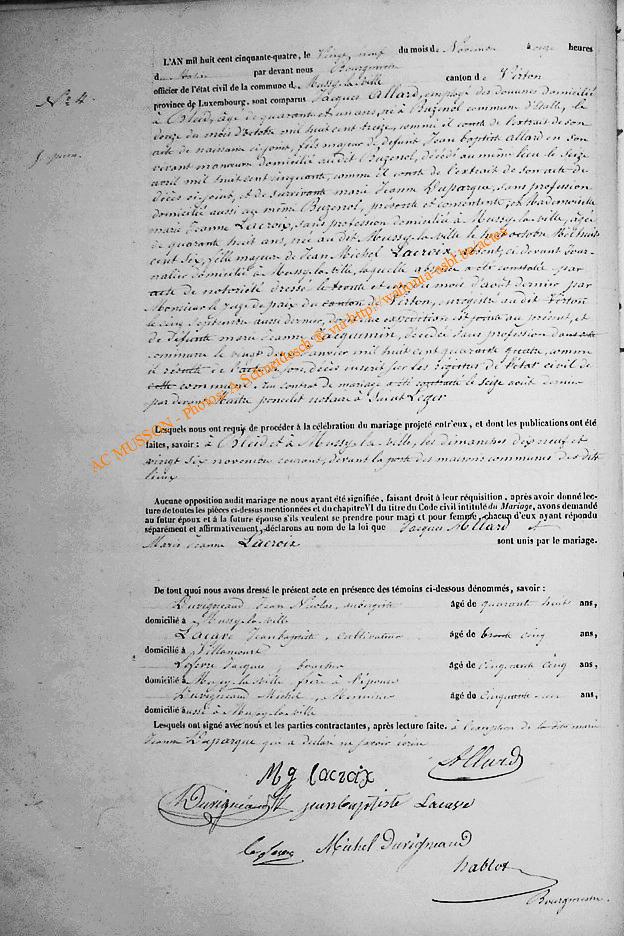 L'AN mil huit cent cinquante-quatre, le Vingt neuf du mois de Novembre à onze heures
d par devant nous Bourgmestre
officier de l'état civil de la commune d Mussy-la-ville canton d e Virton
N° 4.
province de Luxembourg, sont comparus Jacques Allard, employé des douanes domicilié
à Ethe, âgé de quarante et un ans, né à Buzenol commune d'Etalle, le
douze du mois d'octobre mil huit cent treize, comme il conste de l'extrait de son
acte de naissance ci-joint, fils majeur de, defunt Jean baptiste Allard en son
vivant manœuvre domicilié audit Buzenol, décédé au même lieu le seize
avril mil huit cent cinquante, comme il conste de l'extrait de son acte de
décès ci-joint, et de survivante marie Jeanne Duparque, sans profession
domiciliée aussi au même Buzenol, présente et consentante, et Mademoiselle
marie Jeanne Lacroix, sans profession domiciliée à Mussy-la-ville, âgée
de quarante huit ans, née au dit Mussy-la-ville le huit octobre mil huit
cent six, fille majeure de Jean Michel Lacroix absent, ci devant jour-
nalier domicilié à Mussy-la-ville, laquelle absence a été constatée par
acte de notoriété dressé le trente et un du mois d'août dernier par
Monsieur le juge de paix du canton de Virton, enregistré au dit Virton
le cinq Septembre aussi dernier, dont une expédition est jointe au présent, et
de défunte marie Jeanne Jacquemin, décédée sans profession dans cette
commune le vingt janvier mil huit cent quarante quatre, comme
il résulte de l'acte de son décès inscrit sur les registres de l'état civil de
cette commune. Un contrat de mariage a été contracté le seize août dernier
par devant Maître poncelet notaire à Saint Léger
Lesquels nous ont requis de procéder à la célébration du mariage projeté entr'eux, et dont les publications ont été
faites, savoir : à Ethe et à Mussy-la-ville, les dimanches dix neuf et
vingt six novembre courant, devant la porte des maisons communes des dits
lieux
Aucune opposition audit mariage ne nous ayant été signifiée, faisant droit à leur réquisition, après avoir donné lec-
ture de toutes les pièces ci-dessus mentionnées et du chapitre VI du titre du Code civil intitulé du Mariage, avons demandé
au futur époux et à la future épouse s'ils veulent se prendre pour mari et pour femme, chacun d'eux ayant répondu
séparément et affirmativement, déclarons au nom de la loi que Jacques Allard et
Marie Jeanne Lacroix sont unis par le mariage.
De tout quoi nous avons dressé le présent acte en présence des témoins ci-dessous dénommés, savoir :
Duvigneaud Jean Nicolas, aubergiste âgé de quarante huit ans,
domicilié à Mussy-la-ville
Lacave Jean baptiste, cultivateur âgé de trente cinq ans,
domicilié à Willancourt
Lefevre Jacques, boucher âgé de cinquante cinq ans,
domicilié à Mussy-la-ville frère à l'épouse
Duvigneaud Michel, Menuisier âgé de cinquante ans,
domicilié à aussi à Mussy-la-ville
Lesquels ont signé avec nous et les parties contractantes, après lecture faite. à l'exception de la dite marie
Jeanne Duparque qui a déclaré ne savoir écrire
Mg lacroix Allard
Duvigneaud jean baptiste Lacave
Michel Duvigneaud
hablot
Bourgmestre
AC MUSSON - Photos: A Schmidtbusch © via http://wallonia-asbl.be/actes